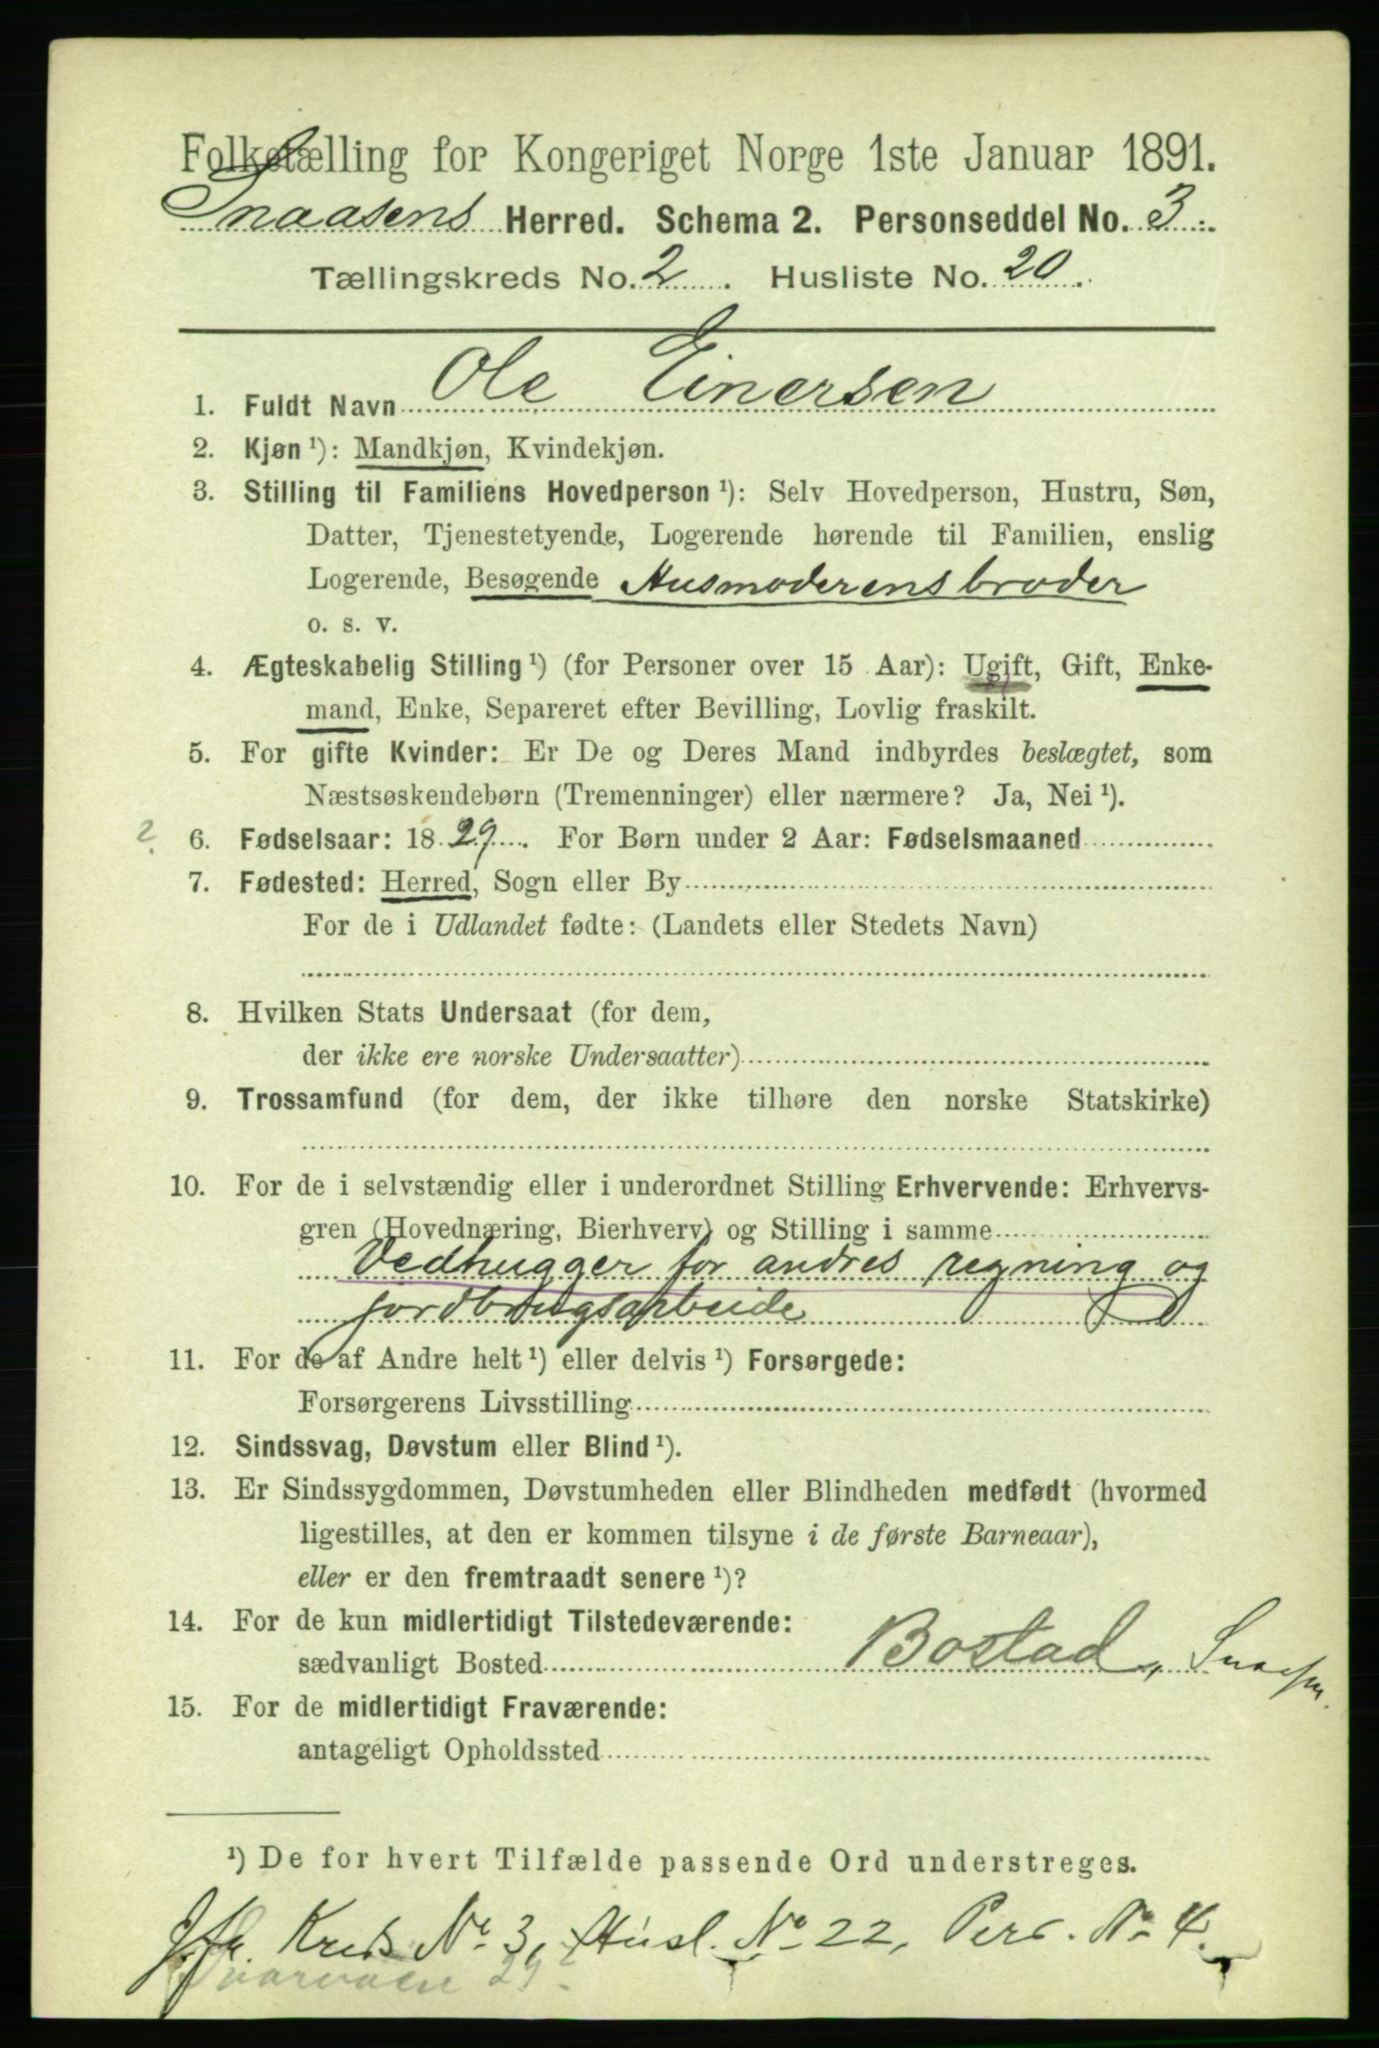 Folketælling for Kongeriget Norge 1ste Januar 1891.
Snaasens Herred. Schema 2. Personseddel No. 3.
Tællingskreds No. 2. Husliste No. 20.
1. Fuldt Navn Ole Einersen
2. Kjøn ¹): Mandkjøn, Kvindekjøn.
3. Stilling til Familiens Hovedperson ¹): Selv Hovedperson, Hustru, Søn,
Datter, Tjenestetyende, Logerende hørende til Familien, enslig
Logerende, Besøgende Husmoderens broder
o. s. v.
4. Ægteskabelig Stilling ¹) (for Personer over 15 Aar): Ugift, Gift, Enke-
mand, Enke, Separeret efter Bevilling, Lovlig fraskilt.
5. For gifte Kvinder: Er De og Deres Mand indbyrdes beslægtet, som
Næstsøskendebørn (Tremenninger) eller nærmere? Ja, Nei ¹).
? 6. Fødselsaar: 1829. For Børn under 2 Aar: Fødselsmaaned
7. Fødested: Herred, Sogn eller By
For de i Udlandet fødte: (Landets eller Stedets Navn)
8. Hvilken Stats Undersaat (for dem,
der ikke ere norske Undersaatter)
9. Trossamfund (for dem, der ikke tilhøre den norske Statskirke)
10. For de i selvstændig eller i underordnet Stilling Erhvervende: Erhvervs-
gren (Hovednæring, Bierhverv) og Stilling i samme
Vedhugger for andres regning og
jordbrugsarbeide
11. For de af Andre helt ¹) eller delvis ¹) Forsørgede:
Forsørgerens Livsstilling
12. Sindssvag, Døvstum eller Blind ¹).
13. Er Sindssygdommen, Døvstumheden eller Blindheden medfødt (hvormed
ligestilles, at den er kommen tilsyne i de første Barneaar),
eller er den fremtraadt senere ¹)?
14. For de kun midlertidigt Tilstedeværende:
sædvanligt Bosted Bostad, Snaasen.
15. For de midlertidigt Fraværende:
antageligt Opholdssted
¹) De for hvert Tilfælde passende Ord understreges.
Jfr. Kreds No 3, Husl. No 22, Pers. No 4.